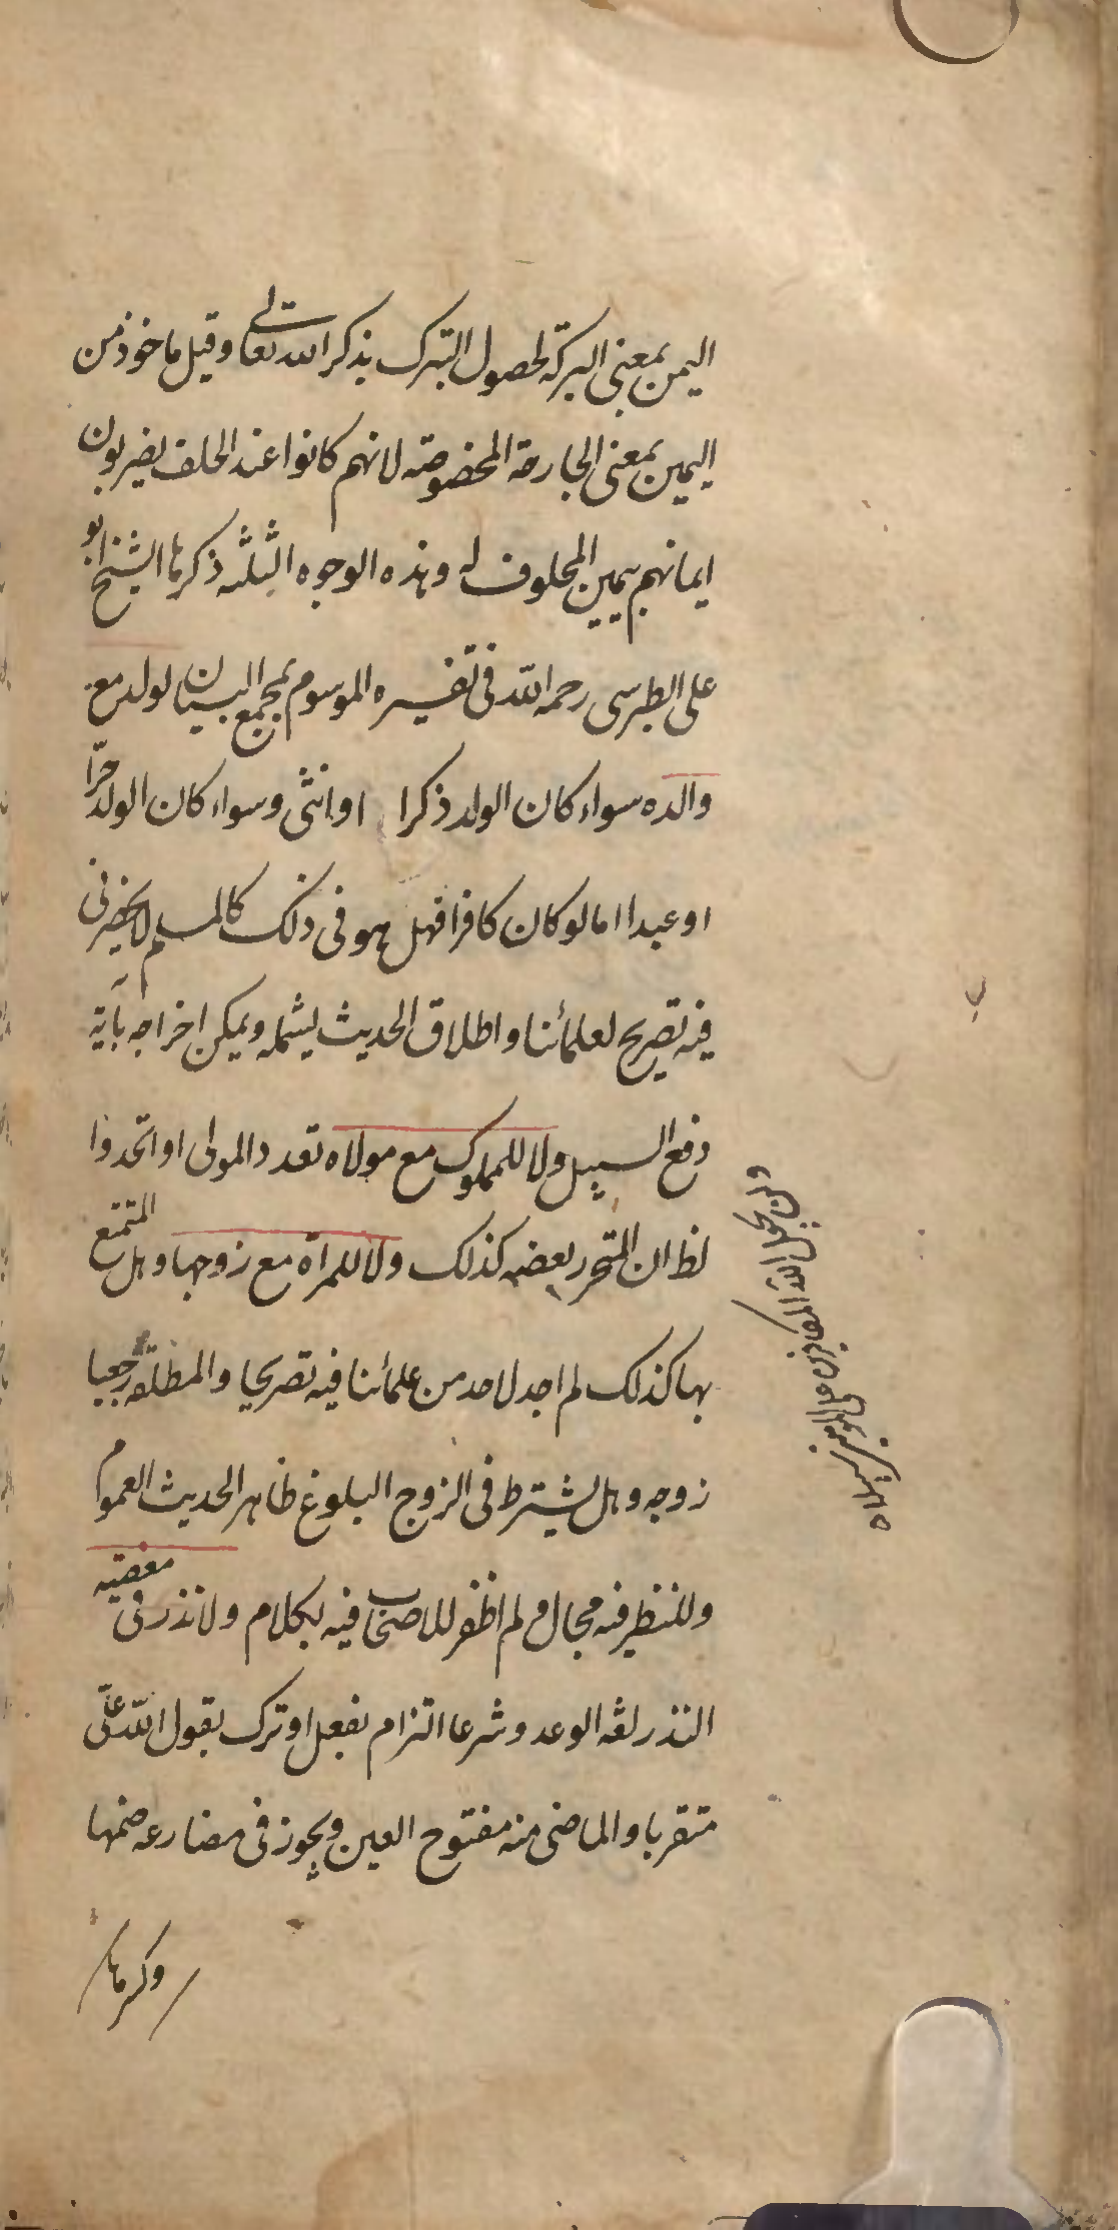 اليمن بمعنى البركة لحصول التبرك بذكر الله تعالى وقيل ماخوذ من
اليمين بمعنى الجارحة المخصوصة لانهم كانوا عند الحلف يضربون
ايمانهم بيمين المحلوف له وهذه الوجوه الثلثه ذكرها الشيخ ابو
على الطبرسى رحمه الله فى تفسيره الموسوم بمجمع البيان لولد مع
والده سواء كان الولد ذكرا او انثى وسواء كان الولد حرّا
او عبدا اما لو كان كافرا فهل هو فى ذلك كالمسلم لا يحضرنى
فيه تصريح لعلمائنا واطلاق الحديث يشمله ويمكن اخراجه بآية
دفع السبيل ولا للمملوك مع مولاه تعدد المولى او اتحد وا
لظ ان المتحرر بعضه كذلك ولا للمراة مع زوجها وهل المتمتع
بها كذلك لم اجد لاحد من علمائنا فيه تصريحا والمطلقة رجعيا
زوجه وهل يشترط فى الزوج البلوغ ظاهر الحديث العموم
وللنظر فيه مجال ولم اظفر للاصحاب فيه بكلام ولا نذر فى معصيه
النذر لغه الوعد وشرعا التزام بفعل او ترك بقول الله علىّ
متقربا والماضى منه مفتوح العين ويجوز فى مضارعه ضمها
وكسرها
ولن يجعل الله للكافرين على المؤمنين سبيلا